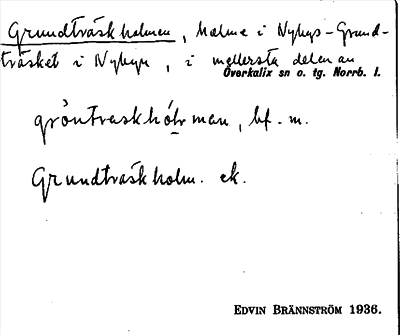 Grundträskholmen, holme i Nybyns-Grund-
träsket i Nybyn, i mellersta delen av
Överkalix sn o. tg. Norrb. l.
gröntraskhólman, bf. m.
Grundträskholm. ek.
EDVIN BRÄNNSTRÖM 1936.